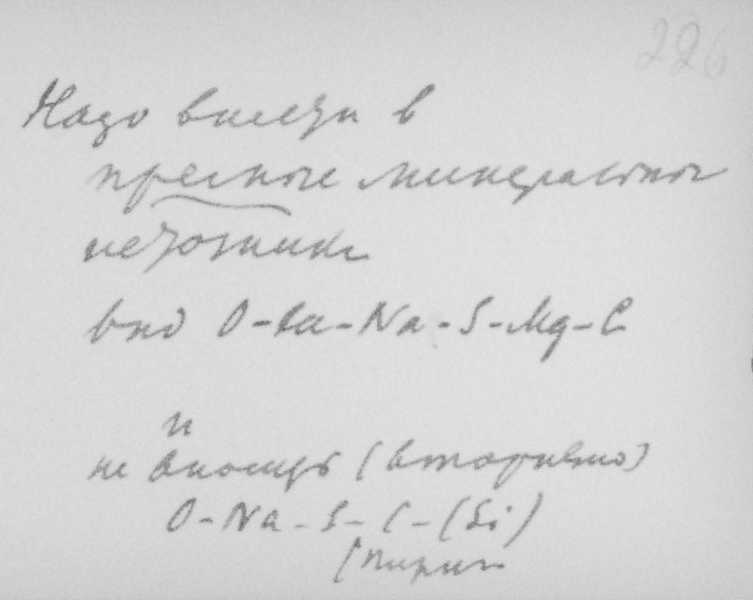 226
Надо внести в
пресные минеральные
источники
вид O-Ca-Na-S-Mg-C
и
не вносить (вторично)
O-Na-S-C-(Si)